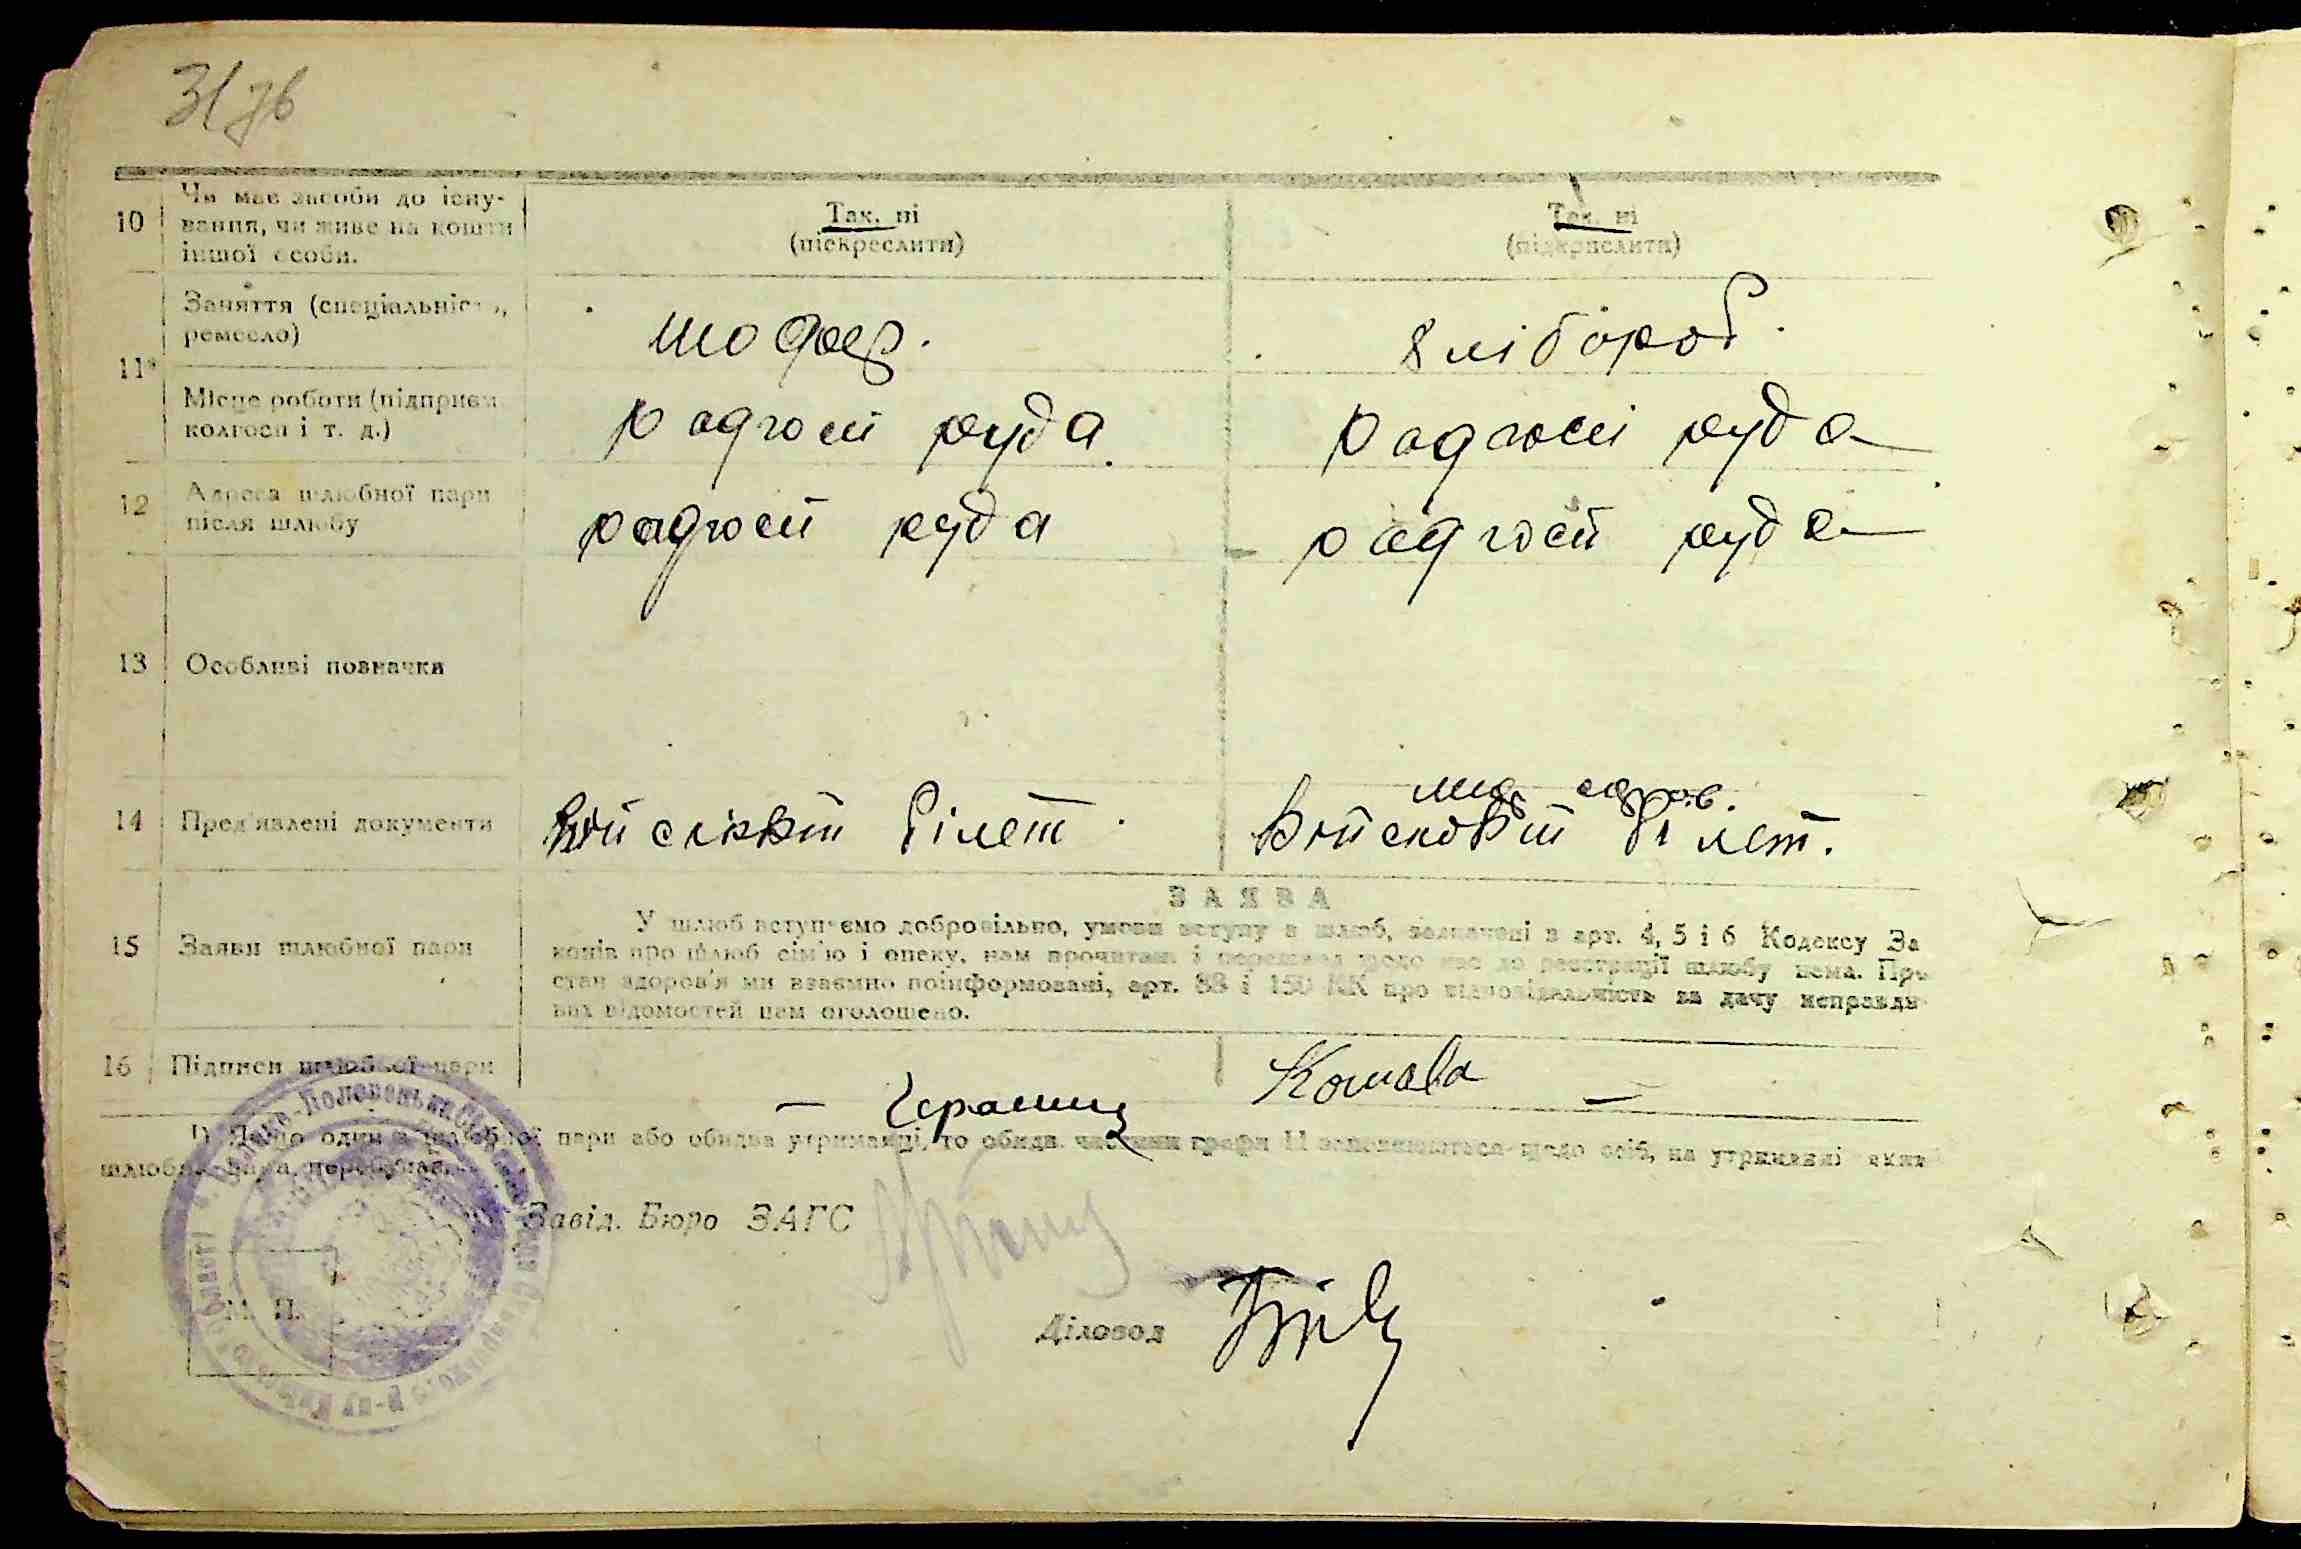 31 зв
10
Чи має засоби до існу-
вання, чи живе на кошти
іншої особи.
Так. ні
(підкреслити)
Так. ні
(підкреслити)
11*
Заняття (спеціальність,
ремесло)
шофер.
хлібороб.
Місце роботи (підприєм
колгосп і т. д.)
радгосп руда
радгосп руда
12
Адреса шлюбної пари
після шлюбу
радгосп руда
радгосп руда
13
Особливі позначки
14
Пред'явлені документи
білет.
Військовий білет.
15
Заяви шлюбної пари
ЗАЯВА
У шлюб вступаємо добровільно, умови вступу в шлюб, зазначені в арт. 4, 5 і 6 Кодексу За
конів про шлюб сім'ю і опеку, нам прочитані і перешкод щодо нас до реєстрації шлюбу нема. Про
стан здоров'я ми взаємно поінформовані, арт. 88 і 150 КК про відповідальність за дачу неправди
вих відомостей нам оголошено.
16
Підписи шлюбної пари
1) Якщо один з шлюбної пари або обидва утриманці, то обидв. частини графи 11 заповнюються щодо осіб, на утриманні яких
шлюбна пара перебуває.
Завід. Бюро ЗАГС
М. П.
Діловод